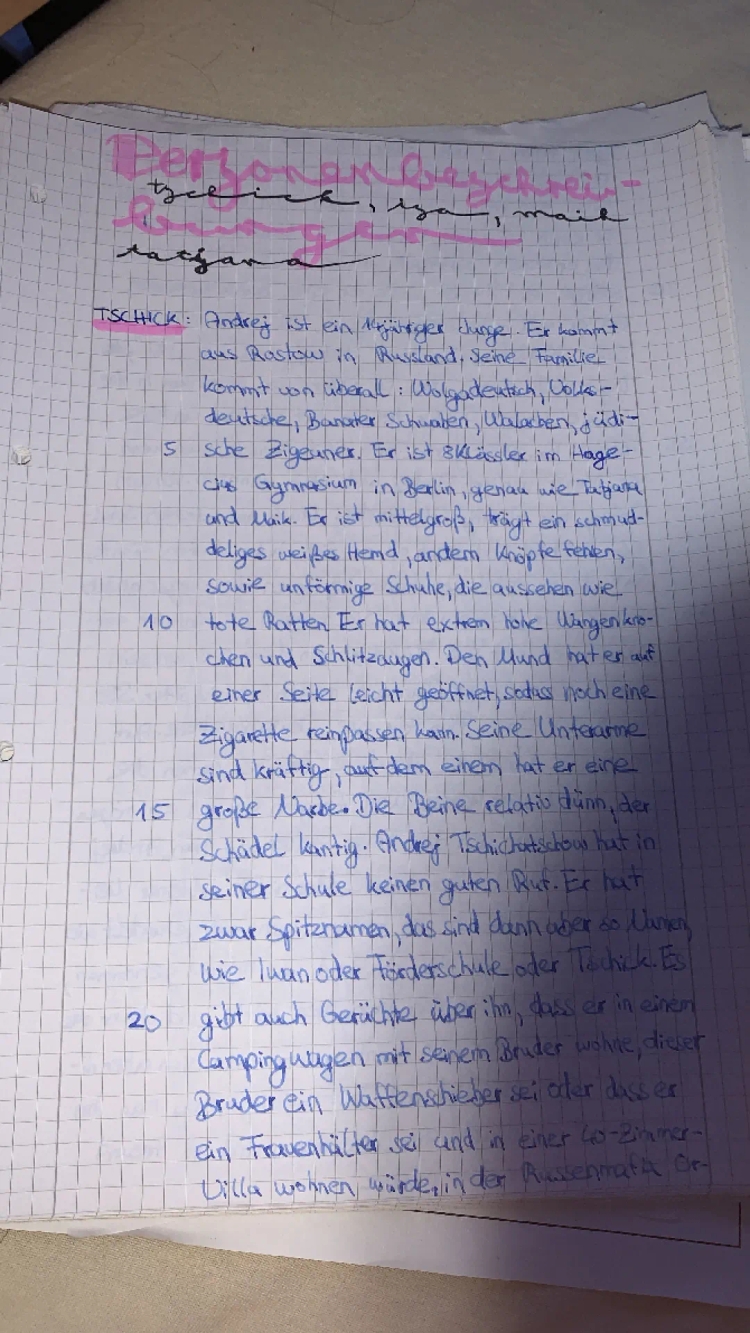 Personenbeschrei-
tschick, isa, maik
bungen
tatjana
TSCHICK: Andrej ist ein 14jähriger Junge. Er kommt
aus Rostow in Russland, seine Familie
kommt von überall: Wolgadeutsch, Volks-
deutsche, Banater Schwaben, Walachen, jüdi-
5 sche Zigeuner. Er ist 8Klässler im Hage-
cius Gymnasium in Berlin, genau wie Tatjana
und Maik. Er ist mittelgroß, trägt ein schmud-
deliges weißes Hemd, andem Knöpfe fehlen,
sowie unförmige Schuhe, die aussehen wie
10 tote Ratten Er hat extrem hohe Wangenkno-
chen und Schlitzaugen. Den Mund hat er auf
einer Seite leicht geöffnet, sodass noch eine
Zigarette reinpassen kann. Seine Unterarme
sind kräftig, auf dem einem hat er eine
15 große Narbe. Die Beine relativ dünn, der
Schädel kantig. Andrej Tschichatschow hat in
seiner Schule keinen guten Ruf. Er hat
zwar Spitznamen, das sind dann aber so Namen
wie Iwan oder Förderschule oder Tschick. Es
20 gibt auch Gerüchte über ihn, dass er in einem
Campingwagen mit seinem Bruder wohne, dieser
Bruder ein Waffenshieber sei oder dass er
ein Frauenhälter sei und in einer 40-Zimmer-
Villa wohnen würde, in der Russenmafia Or-